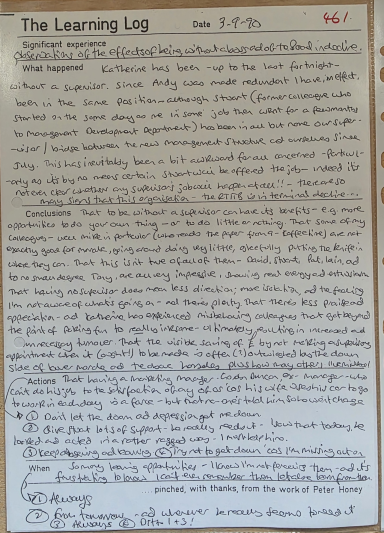 The Learning Log Date 3-9-90 461.
Significant experience
Observations of the effects of being without a boss and of to Rood in decline.
What happened Katherine has been - up to the last fortnight -
without a supervisor. Since Andy was made redundant I have, in effect,
been in the same position - although Stuart (former colleague who
started on the same day as me in some job then went for a few months
to Management Development Department) has been in all but name our super-
-visor / bridge between the new management structure and ourselves since
July. This has inevitably been a bit awkward for all concerned - particul-
-arly as it's by no means certain Stuart will be offered the job - indeed it's
not even clear whether any supervisors job will happen at all!! - there are so
many signs that this organisation - the RTITB is in terminal decline...
Conclusions That to be without a supervisor can have its benefits - e.g. more
opportunities to do your own thing - or to do little or nothing. That some of my
colleagues - are not
exactly good for morale, going around doing very little, gleefully putting the knife in
where they can. That this isn't true of all of them - David, Stuart, Pat, Iain, and
to no small degree Tony, are all very impressive, showing real energy and enthusiasm.
That having no supervisor does mean less direction, more isolation, and the feeling
I'm not aware of what's going on - and there's plenty. That there's less praise and
appreciation - and Katherine has experienced misbehaving colleagues that get beyond
the point of poking fun to really irksome - ultimately resulting in increased and
unnecessary turnover. That the visible saving of £ by not making a supervisory
appointment when it (ought) to be made is often (!) outweighed by the down
side of lower morale and
Actions That having a marketing manager - Ex- manager - who
can't do his job to the satisfaction of any of us (as his wife uses his car to go
to work in each day) is a farce - but
① Don't let the doom and depression get me down.
② Give Stuart lots of support - he really needs it - I saw that today, he
looked and acted in a rather ragged way - I must help him.
③ Keep observing and learning ④ Try not to get down as I'm missing out on
When so many learning opportunities - I know I'm not perceiving them - and it's
frustrating to know I can't even remember them let alone learn from them
.... pinched, with thanks, from the work of Peter Honey
① Always
② From tomorrow - and whenever he really seems to need it
③ Always ④ Ditto 1 + 3!